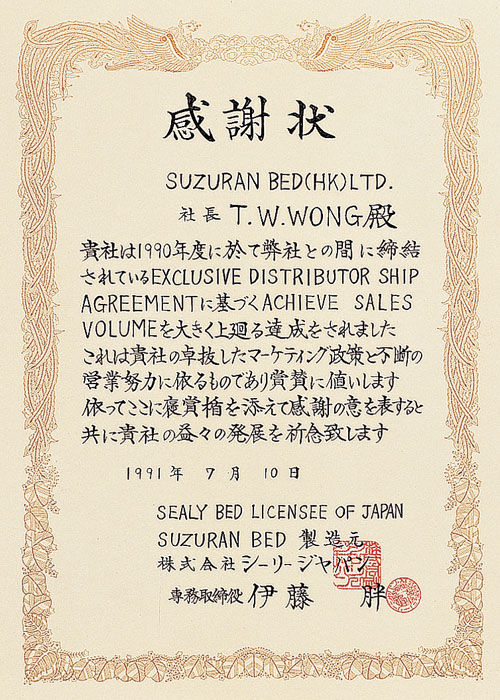 感謝状
SUZURAN BED(HK)LTD.
社長 T.W.WONG殿
貴社は1990年度に於て弊社との間に締結
されているEXCLUSIVE DISTRIBUTOR SHIP
AGREEMENTに基づくACHIEVE SALES
VOLUMEを大きく上廻る達成をされました
これは貴社の卓抜したマーケティング政策と不断の
営業努力に依るものであり賞賛に値いします
依ってここに褒賞楯を添えて感謝の意を表すると
共に貴社の益々の発展を祈念致します
1991年 7月 10日
SEALY BED LICENSEE OF JAPAN
SUZURAN BED 製造元
株式会社シーリージャパン
専務取締役 伊藤 胖